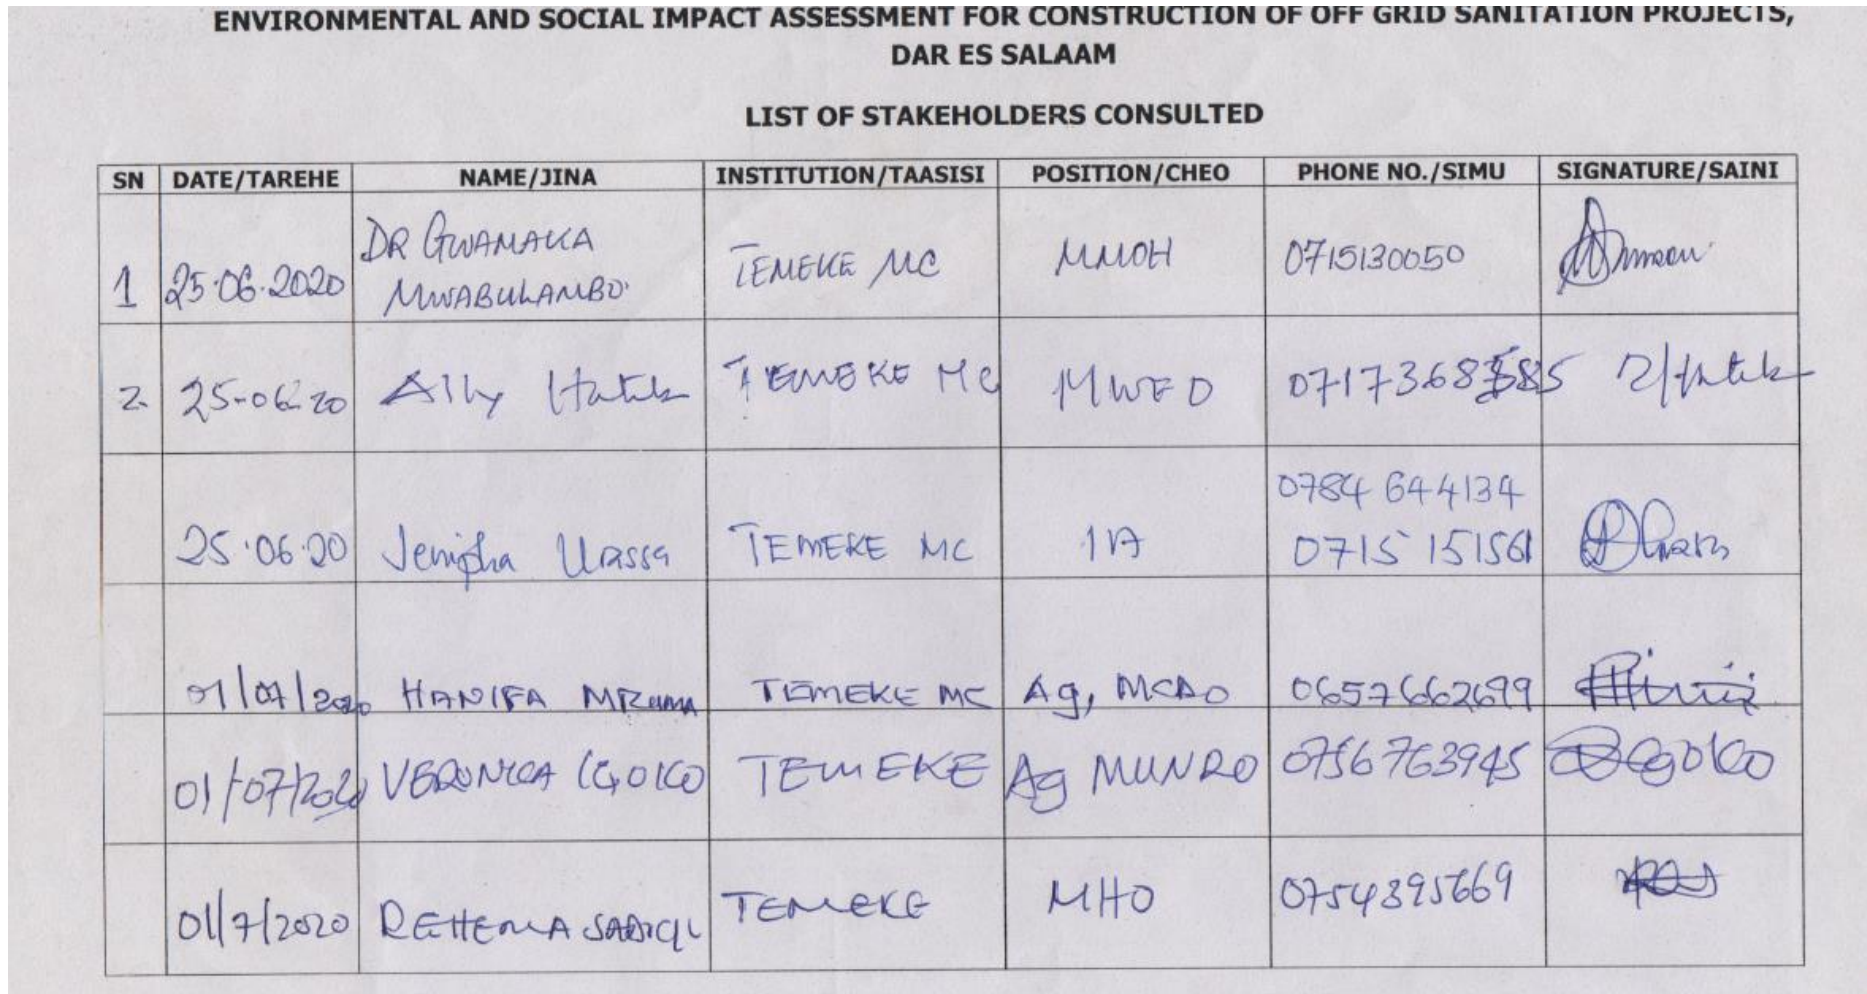 ENVIRONMENTAL AND SOCIAL IMPACT ASSESSMENT FOR CONSTRUCTION OF OFF GRID SANITATION PROJECTS,
DAR ES SALAAM
LIST OF STAKEHOLDERS CONSULTED
SN DATE/TAREHE NAME/JINA INSTITUTION/TAASISI POSITION/CHEO PHONE NO./SIMU SIGNATURE/SAINI
1 25.06.2020 DR GWAMAKA MWABULAMBO. TEMEKE MC MMOH 0715130050
2. 25-06-20 Ally Hatibu TEMEKE MC MWEO
25.06.20 Jenipha Urassa TEMEKE MC IA 0784 644134
0715 151561
01/07/2020 HANIFA MRUMA TEMEKE MC Ag, MCDO 0657662699
01/07/2020 VERONICA TEMEKE Ag MUNRO 0756763945
01/7/2020 REHEMA SADICK TEMEKE MHO 0754395669